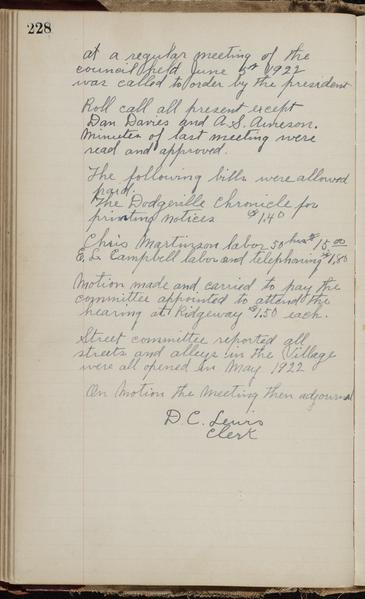 228
at a regular meeting of the
council held June 5st 1922
was called to order by the president
Roll call all present except
Dan Davies and A.S. Arneson.
Minutes of last meeting were
read and approved.
The following bills were allowed
paid.
The Dodgeville Chronicle for
printing notices $1.40
Chris Martinson labor 50 hrs 15.00
E.L. Campbell labor and telephoning $1.80
Motion made and carried to pay the
committee appointed to attend the
hearing at Ridgeway $1.50 each.
Street committee reported all
streets and alleys in the Village
were all opened in May 1922
On Motion the Meeting then adjourned
D.C. Lewis
Clerk